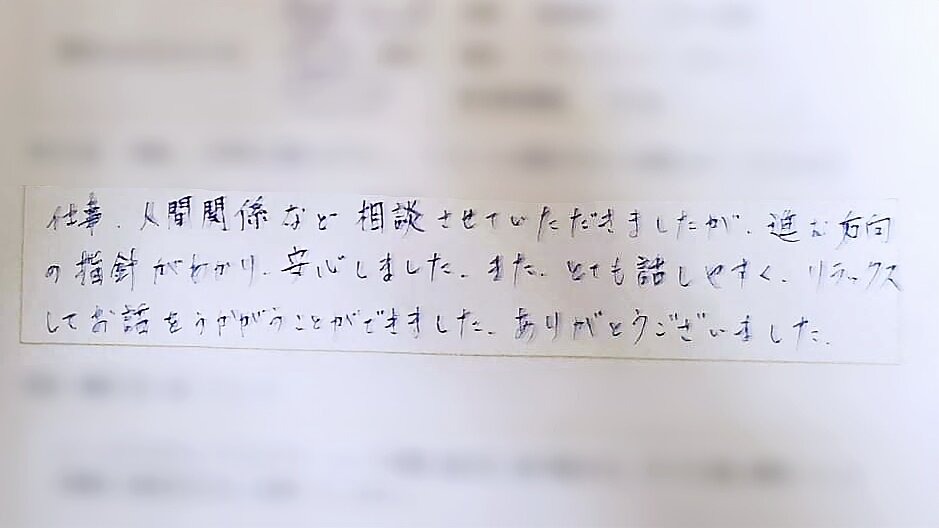 仕事、人間関係など相談させていただきましたが、進む方向
の指針がわかり、安心しました。また、とても話しやすく、リラックス
してお話をうかがうことができました。ありがとうございました。